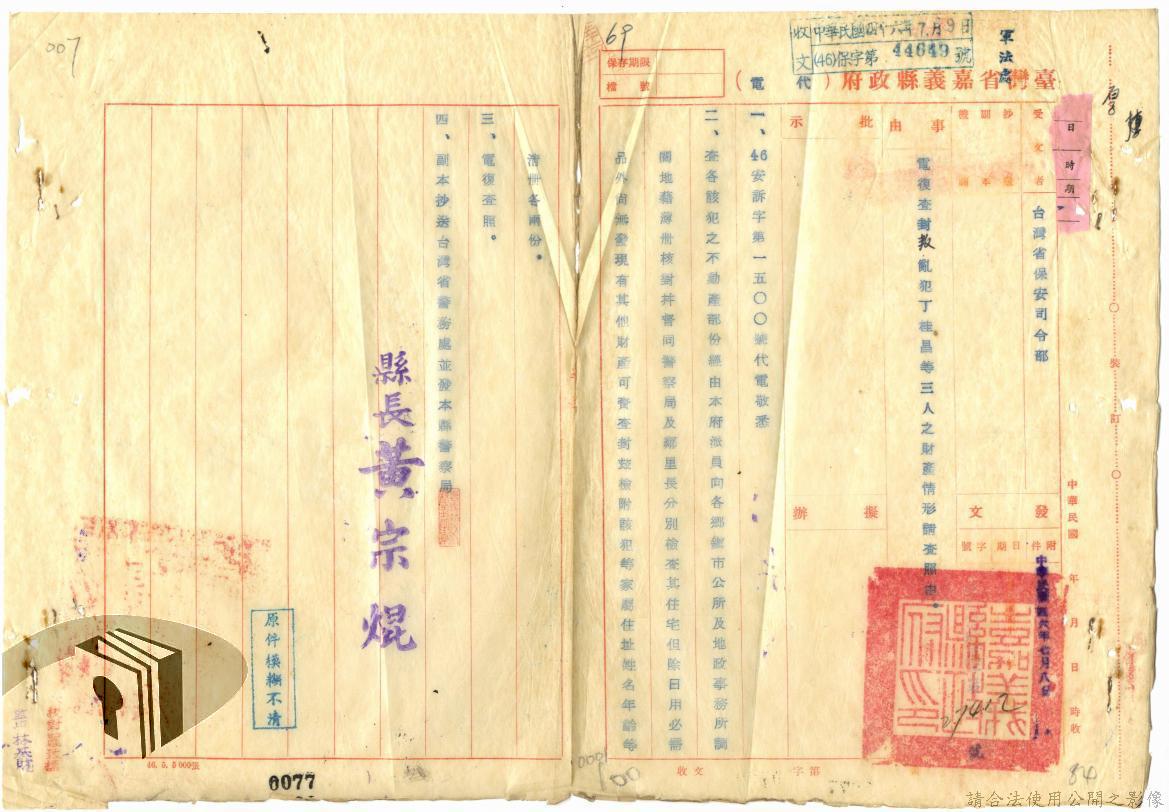 69
收文 中華民國四十六年7月9日
(46)保字第44649號
軍法處
保存期限
檔號
臺灣省嘉義縣政府(代電)
日
時
期
受文者
台灣省保安司令部
抄副
本
事由
批示
電復查封叛亂犯丁桂昌等三人之財產情形請查照由。
擬辦
發文
附件 日期 字號
中華民國四六年七月八日
號
中華民國 年 月 日 時收
裝
訂
一、46安訴字第一五〇〇號代電敬悉
二、查各該犯之不動產部份經由本府派員向各鄉鎮市公所及地政事務所調
閱地籍簿冊核對并督同警察局及鄉里長分別檢查其住宅但除日用必需
品外尚無發現有其他財產可資查封茲檢附該犯等家屬住址姓名年齡等
清冊各兩份。
三、電復查照。
四、副本抄送台灣省警務處並發本縣警察局
縣長黃宗焜
原件模糊不清
收文 字第
007
46.5.5000張
0077
84
請合法使用公開之影像